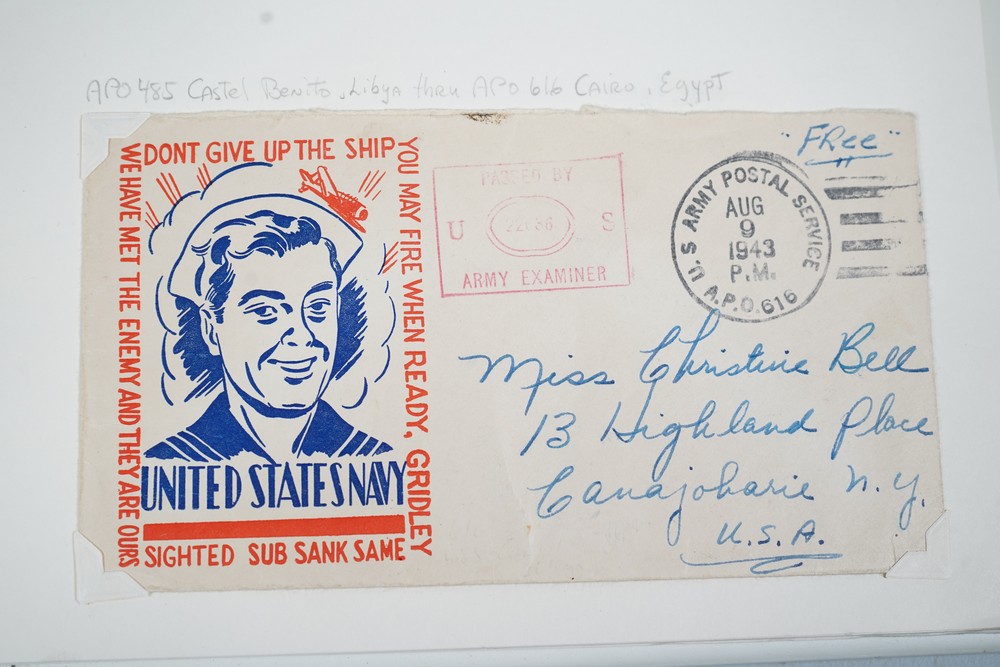 APO 485 Castel Benito, Libya thru APO 616 Cairo, Egypt
DONT GIVE UP THE SHIP
YOU MAY FIRE WHEN READY, GRIDLEY
WE HAVE MET THE ENEMY AND THEY ARE OURS
UNITED STATES NAVY
SIGHTED SUB SANK SAME
PASSED BY
U S
ARMY EXAMINER
"FRee"
U.S. ARMY POSTAL SERVICE
AUG
9
1943
P.M.
A.P.O. 616
Miss Christine Bell
13 Highland Place
Canajoharie N.Y.
U.S.A.